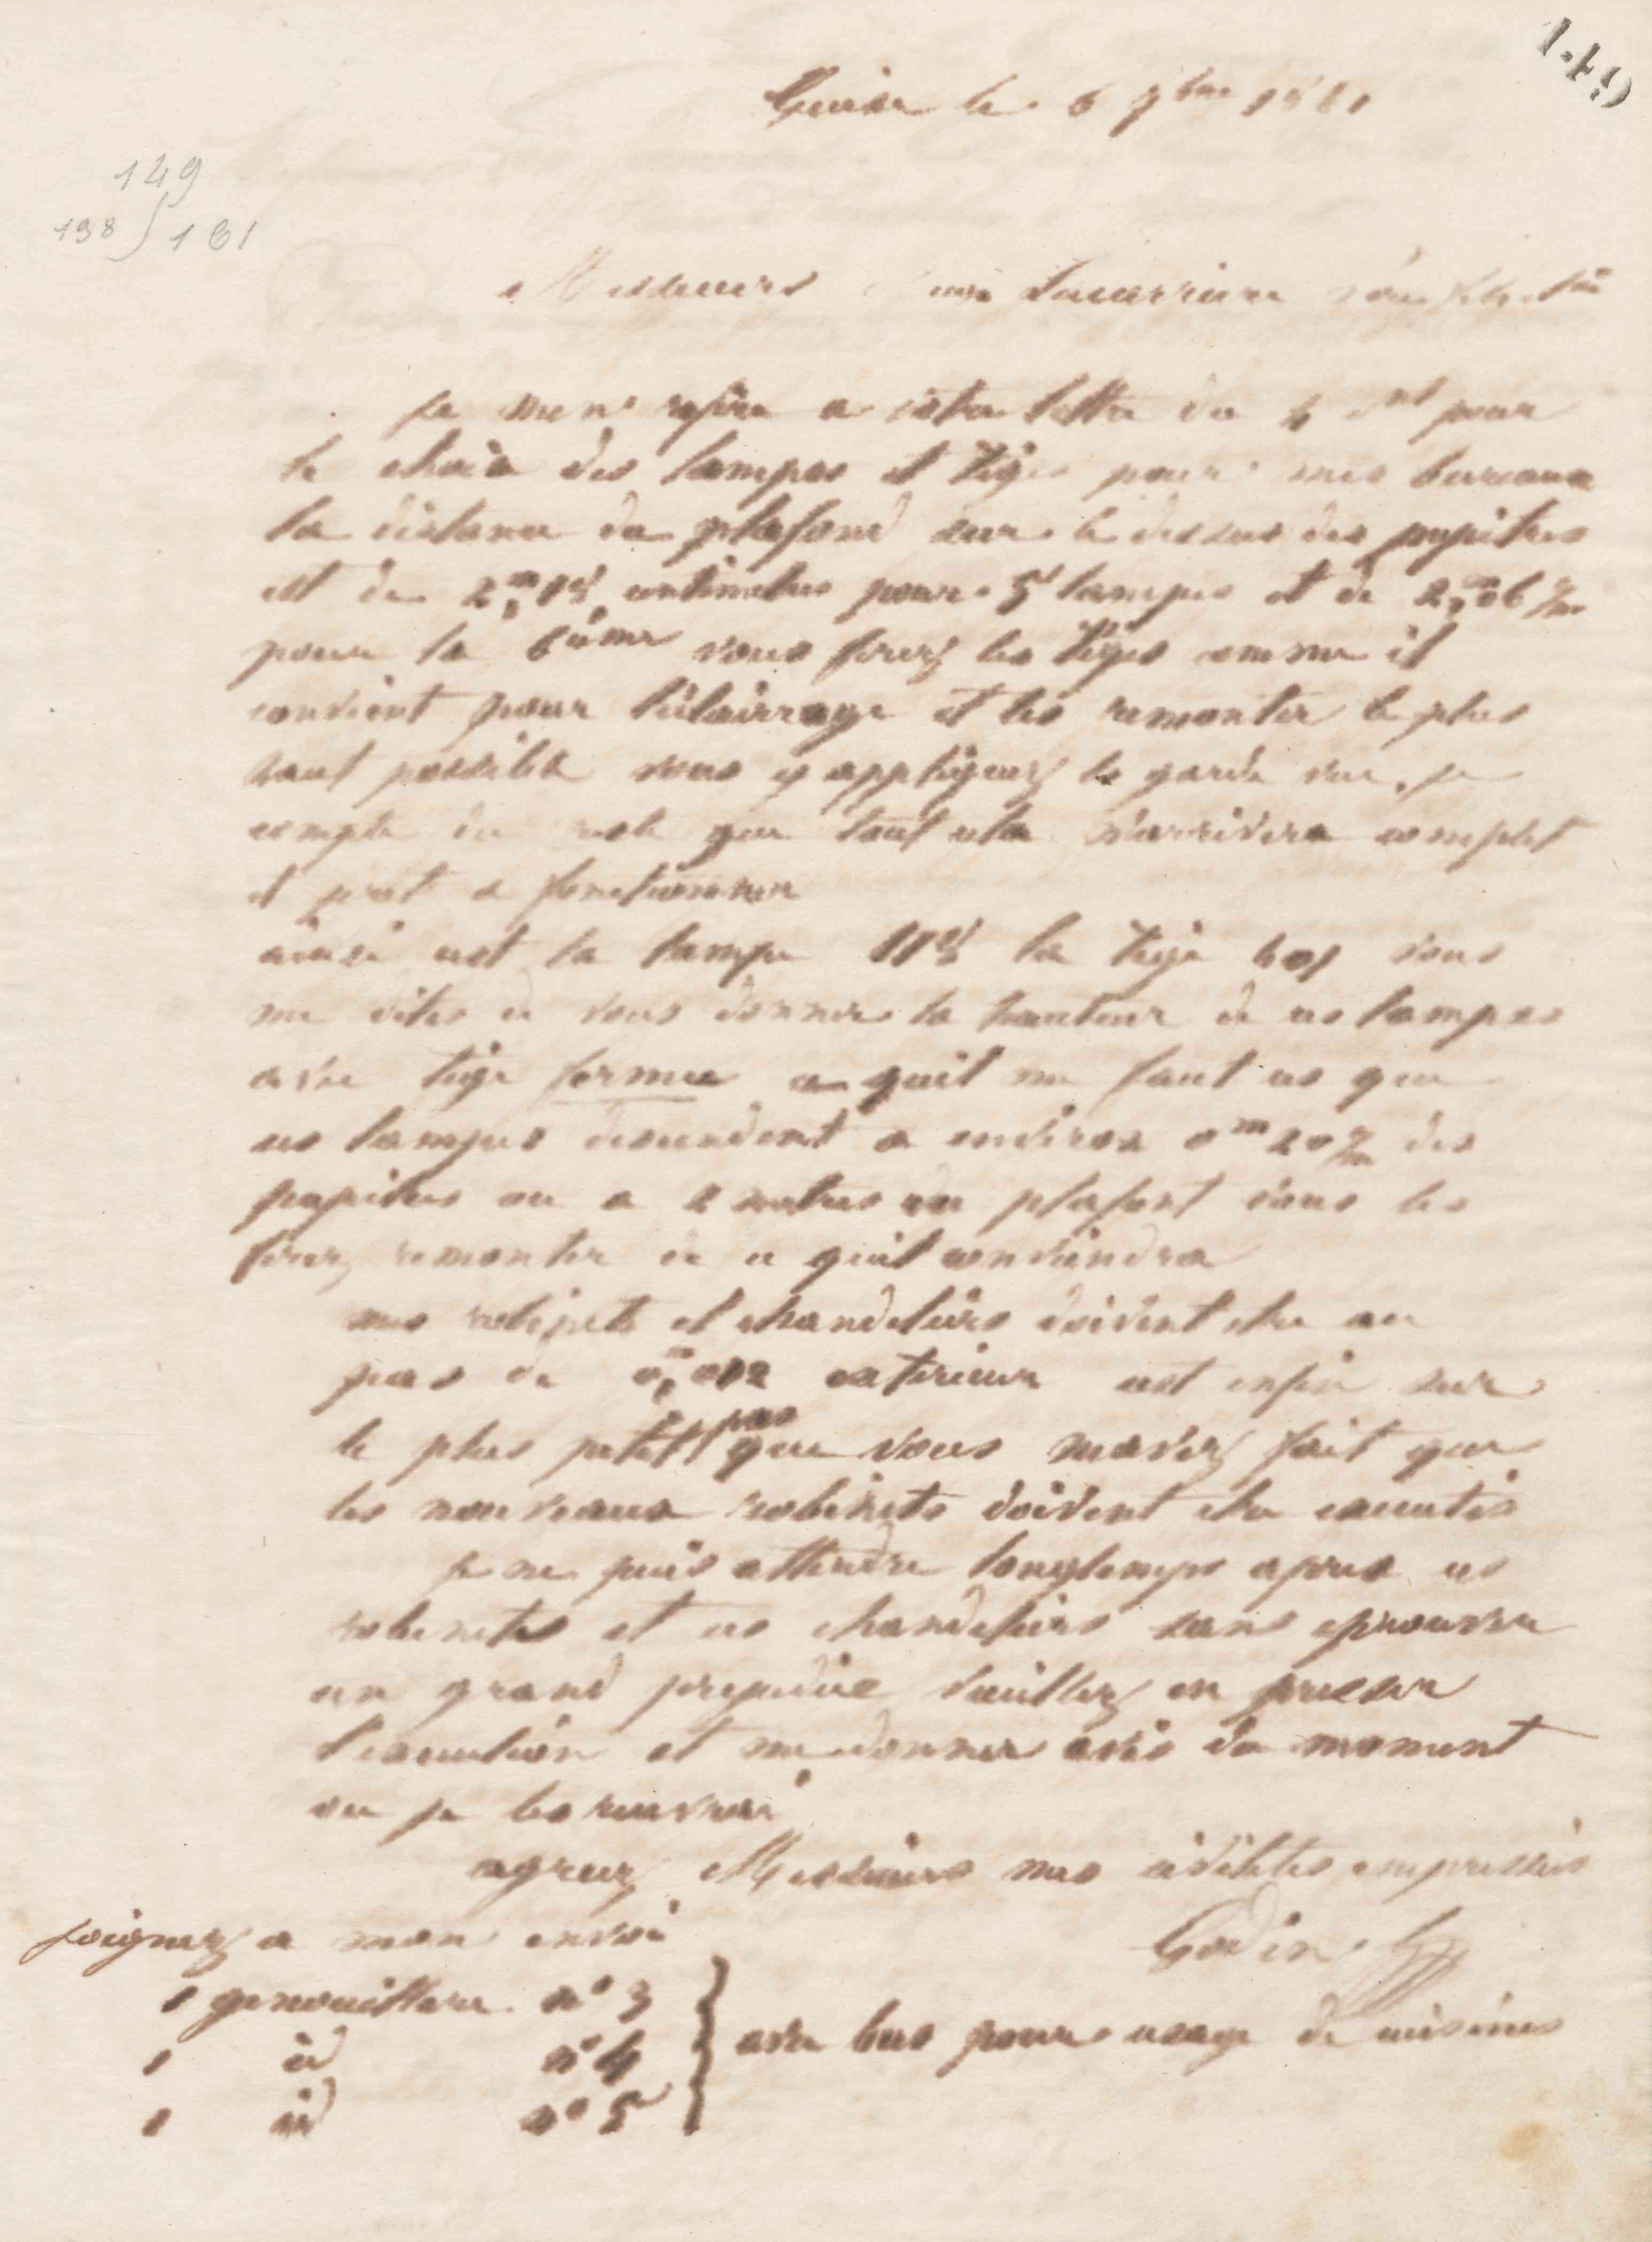 149
Guise le 6 7bre 1861
149
138 ) 161
Messieurs Lacarrière
Je m'en réfère a votre lettre du 4 pour
le choix des lampes et tiges pour mes bureaux
la distance du plafond sur le dessus des pupitres
est de 2,m18 centimetres pour 5 lampes et de 2,m06 c/m
pour la 6ième vous ferez les tiges comme il
convient pour l'éclairrage et les remonter le plus
haut possible vous y appliquerez le garde vue, je
compte du reste que tout cela m'arrivera complet
et pret a fonctionner
ainsi est la lampe la tige 401 vous
me dites de vous donner la hauteur de ces lampes
avec tige fermee ce quil me faut cest que
ces lampes descendent a environ 0m20 c/m des
pupitres ou a 2 metres du plafont vous les
ferez remonter de ce quil conviendra
mes robinets et chandeliers doivent etre au
pas de 0,m012 exterieur cest enfin sur
le plus petit pas que vous mavez fait que
les nouveaux robinets doivent etre executés
je ne puis attendre longtemps apres ces
robinets et ces chandeliers sans eprouver
un grand prejudice veuillez en presser
l'execution et me donner avis du moment
ou je les recevrai
agreez Messieurs mes civilités empressées
Godin
joignez a mon envoi
1 genouillere n° 3
1 id n° 4
1 id n° 5
avec bec pour usage de cuisines